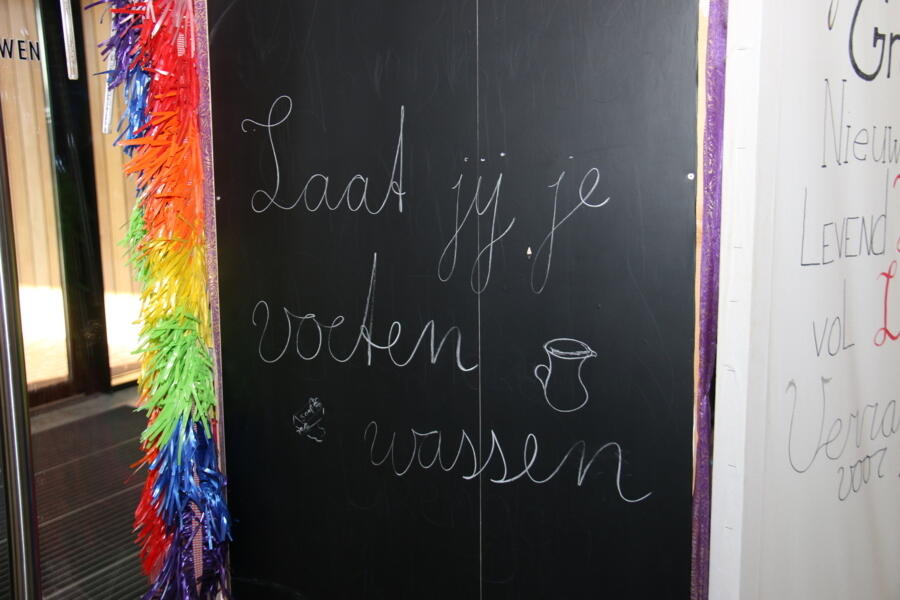 WEN
Laat jij je
voeten
wassen
Gr
Nieuw
LEVEND
vol
Verra
voor